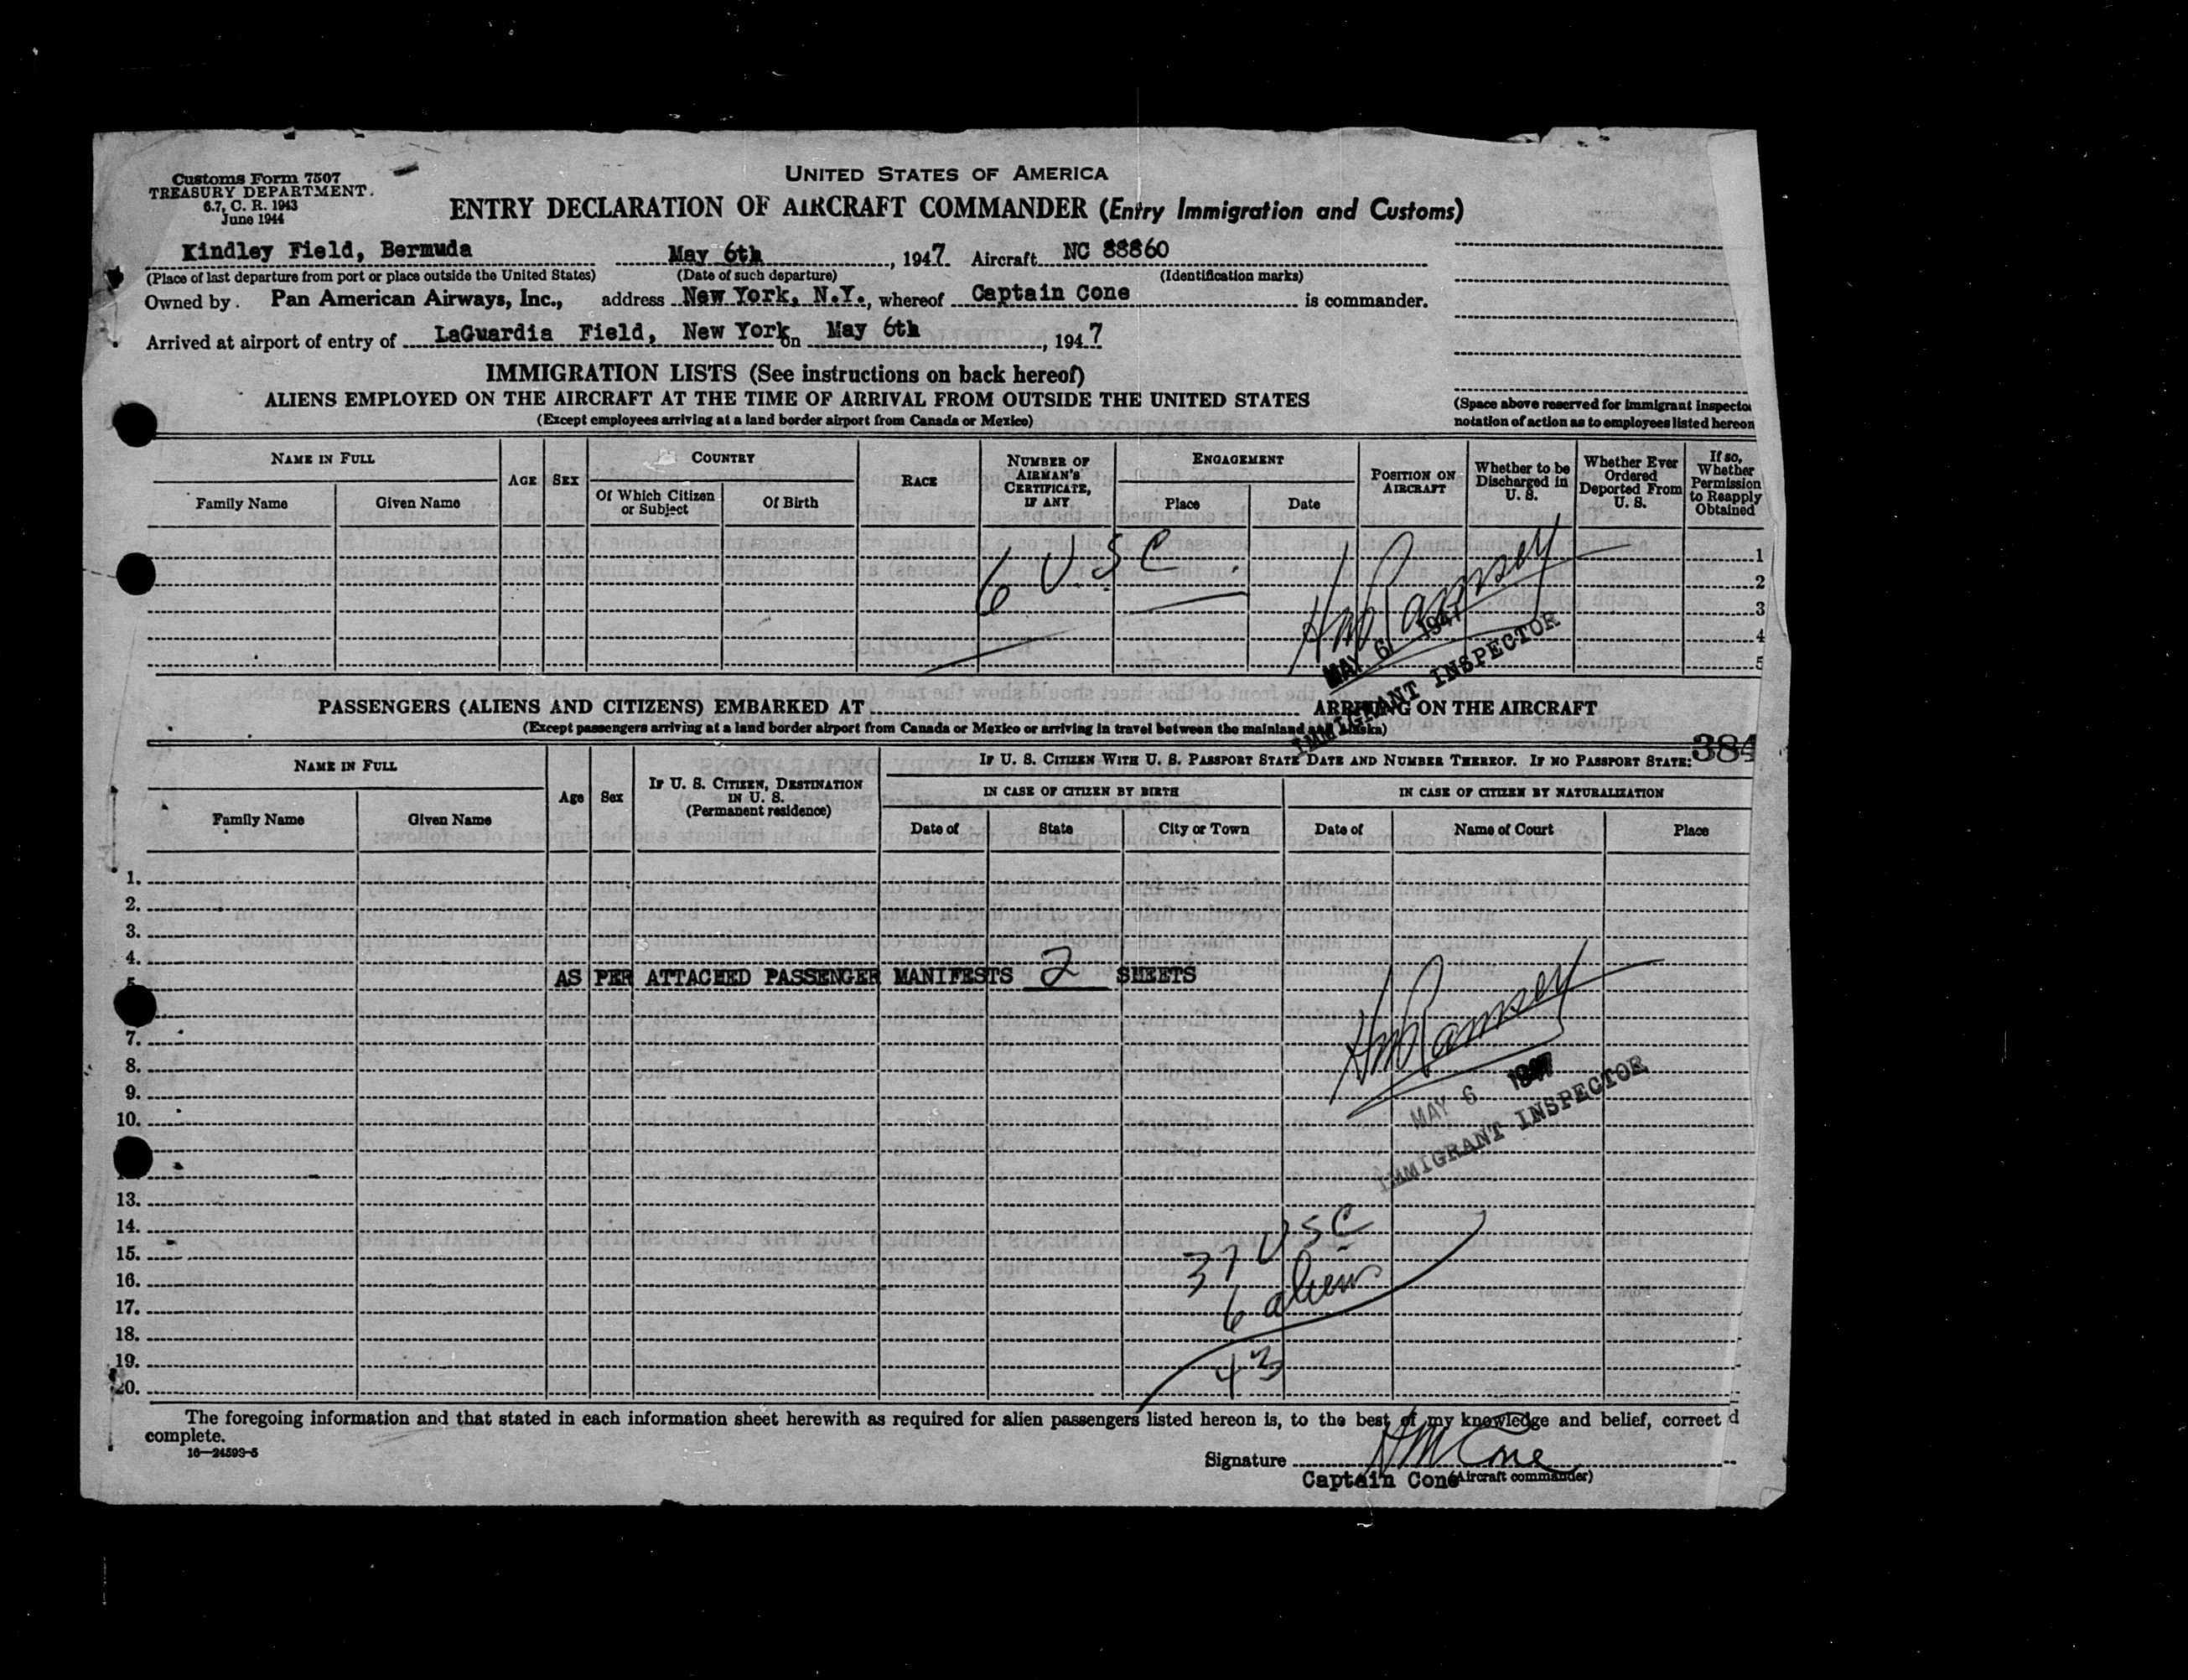 Customs Form 7507
TREASURY DEPARTMENT.
6.7, C. R. 1943
June 1944
UNITED STATES OF AMERICA
ENTRY DECLARATION OF AIRCRAFT COMMANDER (Entry Immigration and Customs)
Kindley Field, Bermuda May 6th, 1947 Aircraft NC 88860
(Place of last departure from port or place outside the United States) (Date of such departure) (Identification marks)
Owned by. Pan American Airways, Inc., address New York, N.Y., whereof Captain Cone is commander.
Arrived at airport of entry of LaGuardia Field, New York on May 6th, 1947
IMMIGRATION LISTS (See instructions on back hereof)
ALIENS EMPLOYED ON THE AIRCRAFT AT THE TIME OF ARRIVAL FROM OUTSIDE THE UNITED STATES
(Except employees arriving at a land border airport from Canada or Mexico)
(Space above reserved for immigrant inspector
notation of action as to employees listed hereon
NAME IN FULL
Family Name Given Name
AGE SEX
COUNTRY
Of Which Citizen or Subject Of Birth
RACE
NUMBER OF AIRMAN'S CERTIFICATE, IF ANY
ENGAGEMENT
Place Date
POSITION ON AIRCRAFT
Whether to be Discharged in U. S.
Whether Ever Ordered Deported From U. S.
If so, Whether Permission to Reapply Obtained
1
2
3
4
5
6 U.S.C.
HM Ramsey
MAY 6 1947
IMMIGRANT INSPECTOR
PASSENGERS (ALIENS AND CITIZENS) EMBARKED AT ARRIVING ON THE AIRCRAFT
(Except passengers arriving at a land border airport from Canada or Mexico or arriving in travel between the mainland and Alaska)
384
NAME IN FULL
Family Name Given Name
Age Sex
IF U. S. CITIZEN, DESTINATION IN U. S.
(Permanent residence)
IF U. S. CITIZEN WITH U. S. PASSPORT STATE DATE AND NUMBER THEREOF. IF NO PASSPORT STATE:
IN CASE OF CITIZEN BY BIRTH IN CASE OF CITIZEN BY NATURALIZATION
Date of State City or Town Date of Name of Court Place
1.
2.
3.
4.
5.
AS PER ATTACHED PASSENGER MANIFESTS 2 SHEETS
7.
8.
9.
10.
HM Ramsey
MAY 6 1947
IMMIGRANT INSPECTOR
13.
14.
15.
16.
17.
18.
19.
20.
37 USC
6 aliens
43
The foregoing information and that stated in each information sheet herewith as required for alien passengers listed hereon is, to the best of my knowledge and belief, correct d
complete.
16—24593-5
Signature HM Cone
Captain Cone (Aircraft commander)